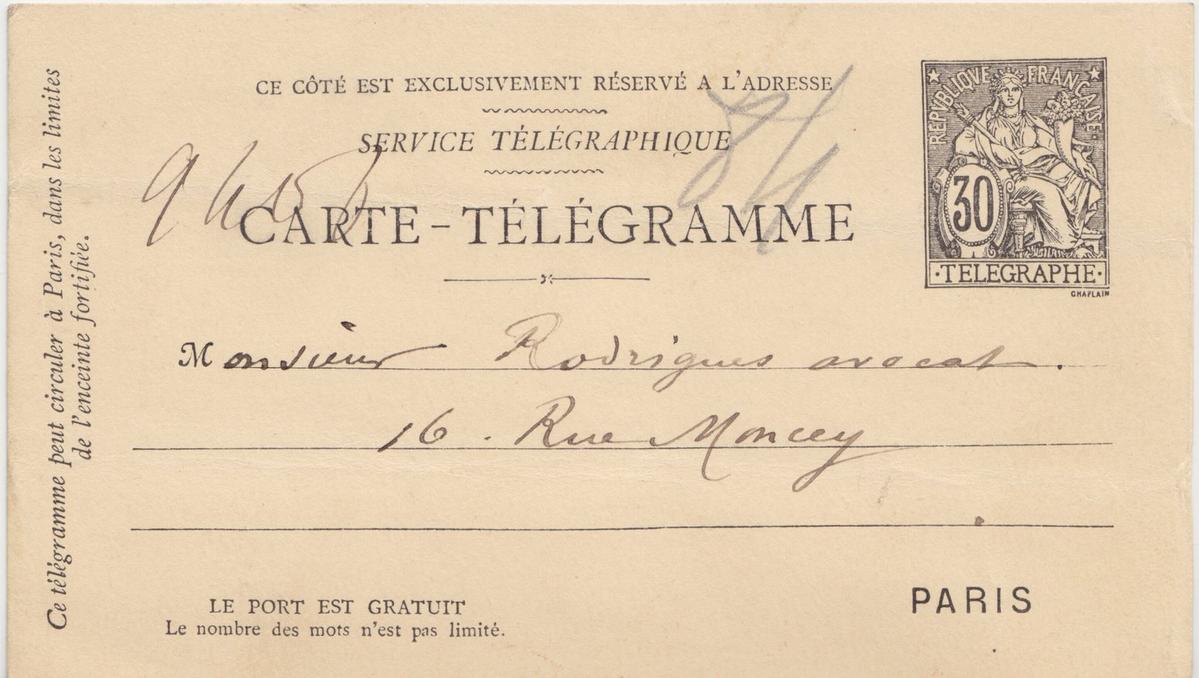 CE CÔTÉ EST EXCLUSIVEMENT RÉSERVÉ A L'ADRESSE
SERVICE TÉLÉGRAPHIQUE
CARTE-TÉLÉGRAMME
REPVBLIQVE FRANCAISE
30
TELEGRAPHE
CHAPLAIN
Monsieur Rodrigues avocat.
16. Rue Moncey
PARIS
LE PORT EST GRATUIT
Le nombre des mots n'est pas limité.
Ce télégramme peut circuler à Paris, dans les limites
de l'enceinte fortifiée.